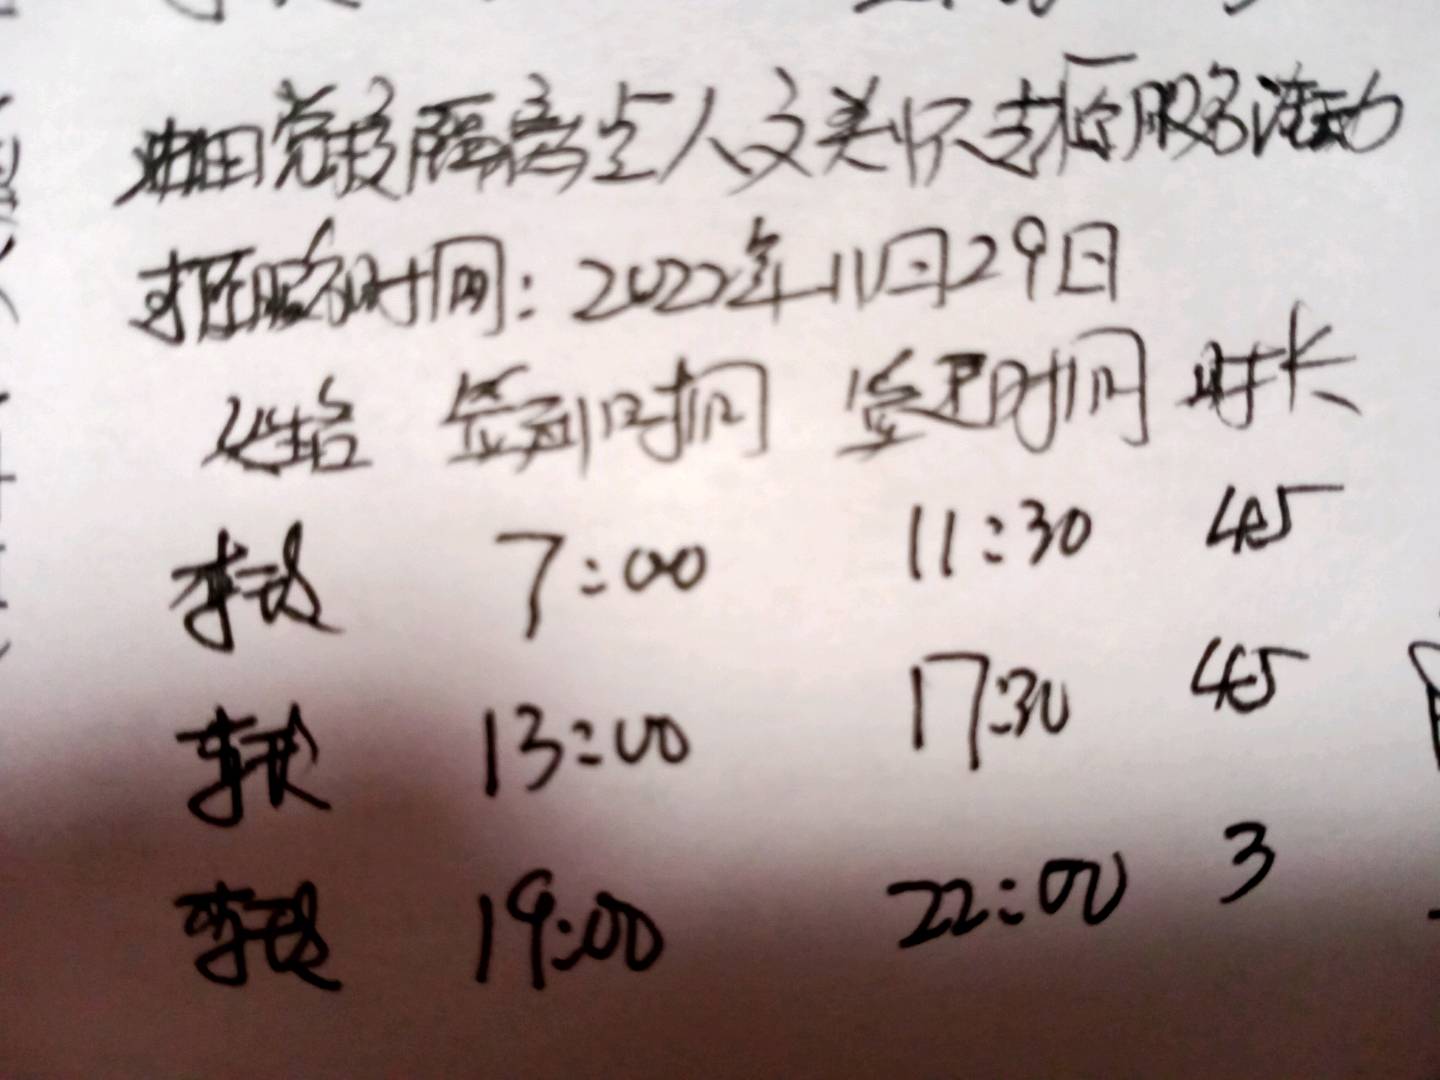 油田党校隔离点人文关怀志愿服务活动
志愿服务时间：2022年11月29日
姓名 签到时间 签退时间 时长
李 7:00 11:30 4.5
李 13:00 17:30 4.5
李 19:00 22:00 3